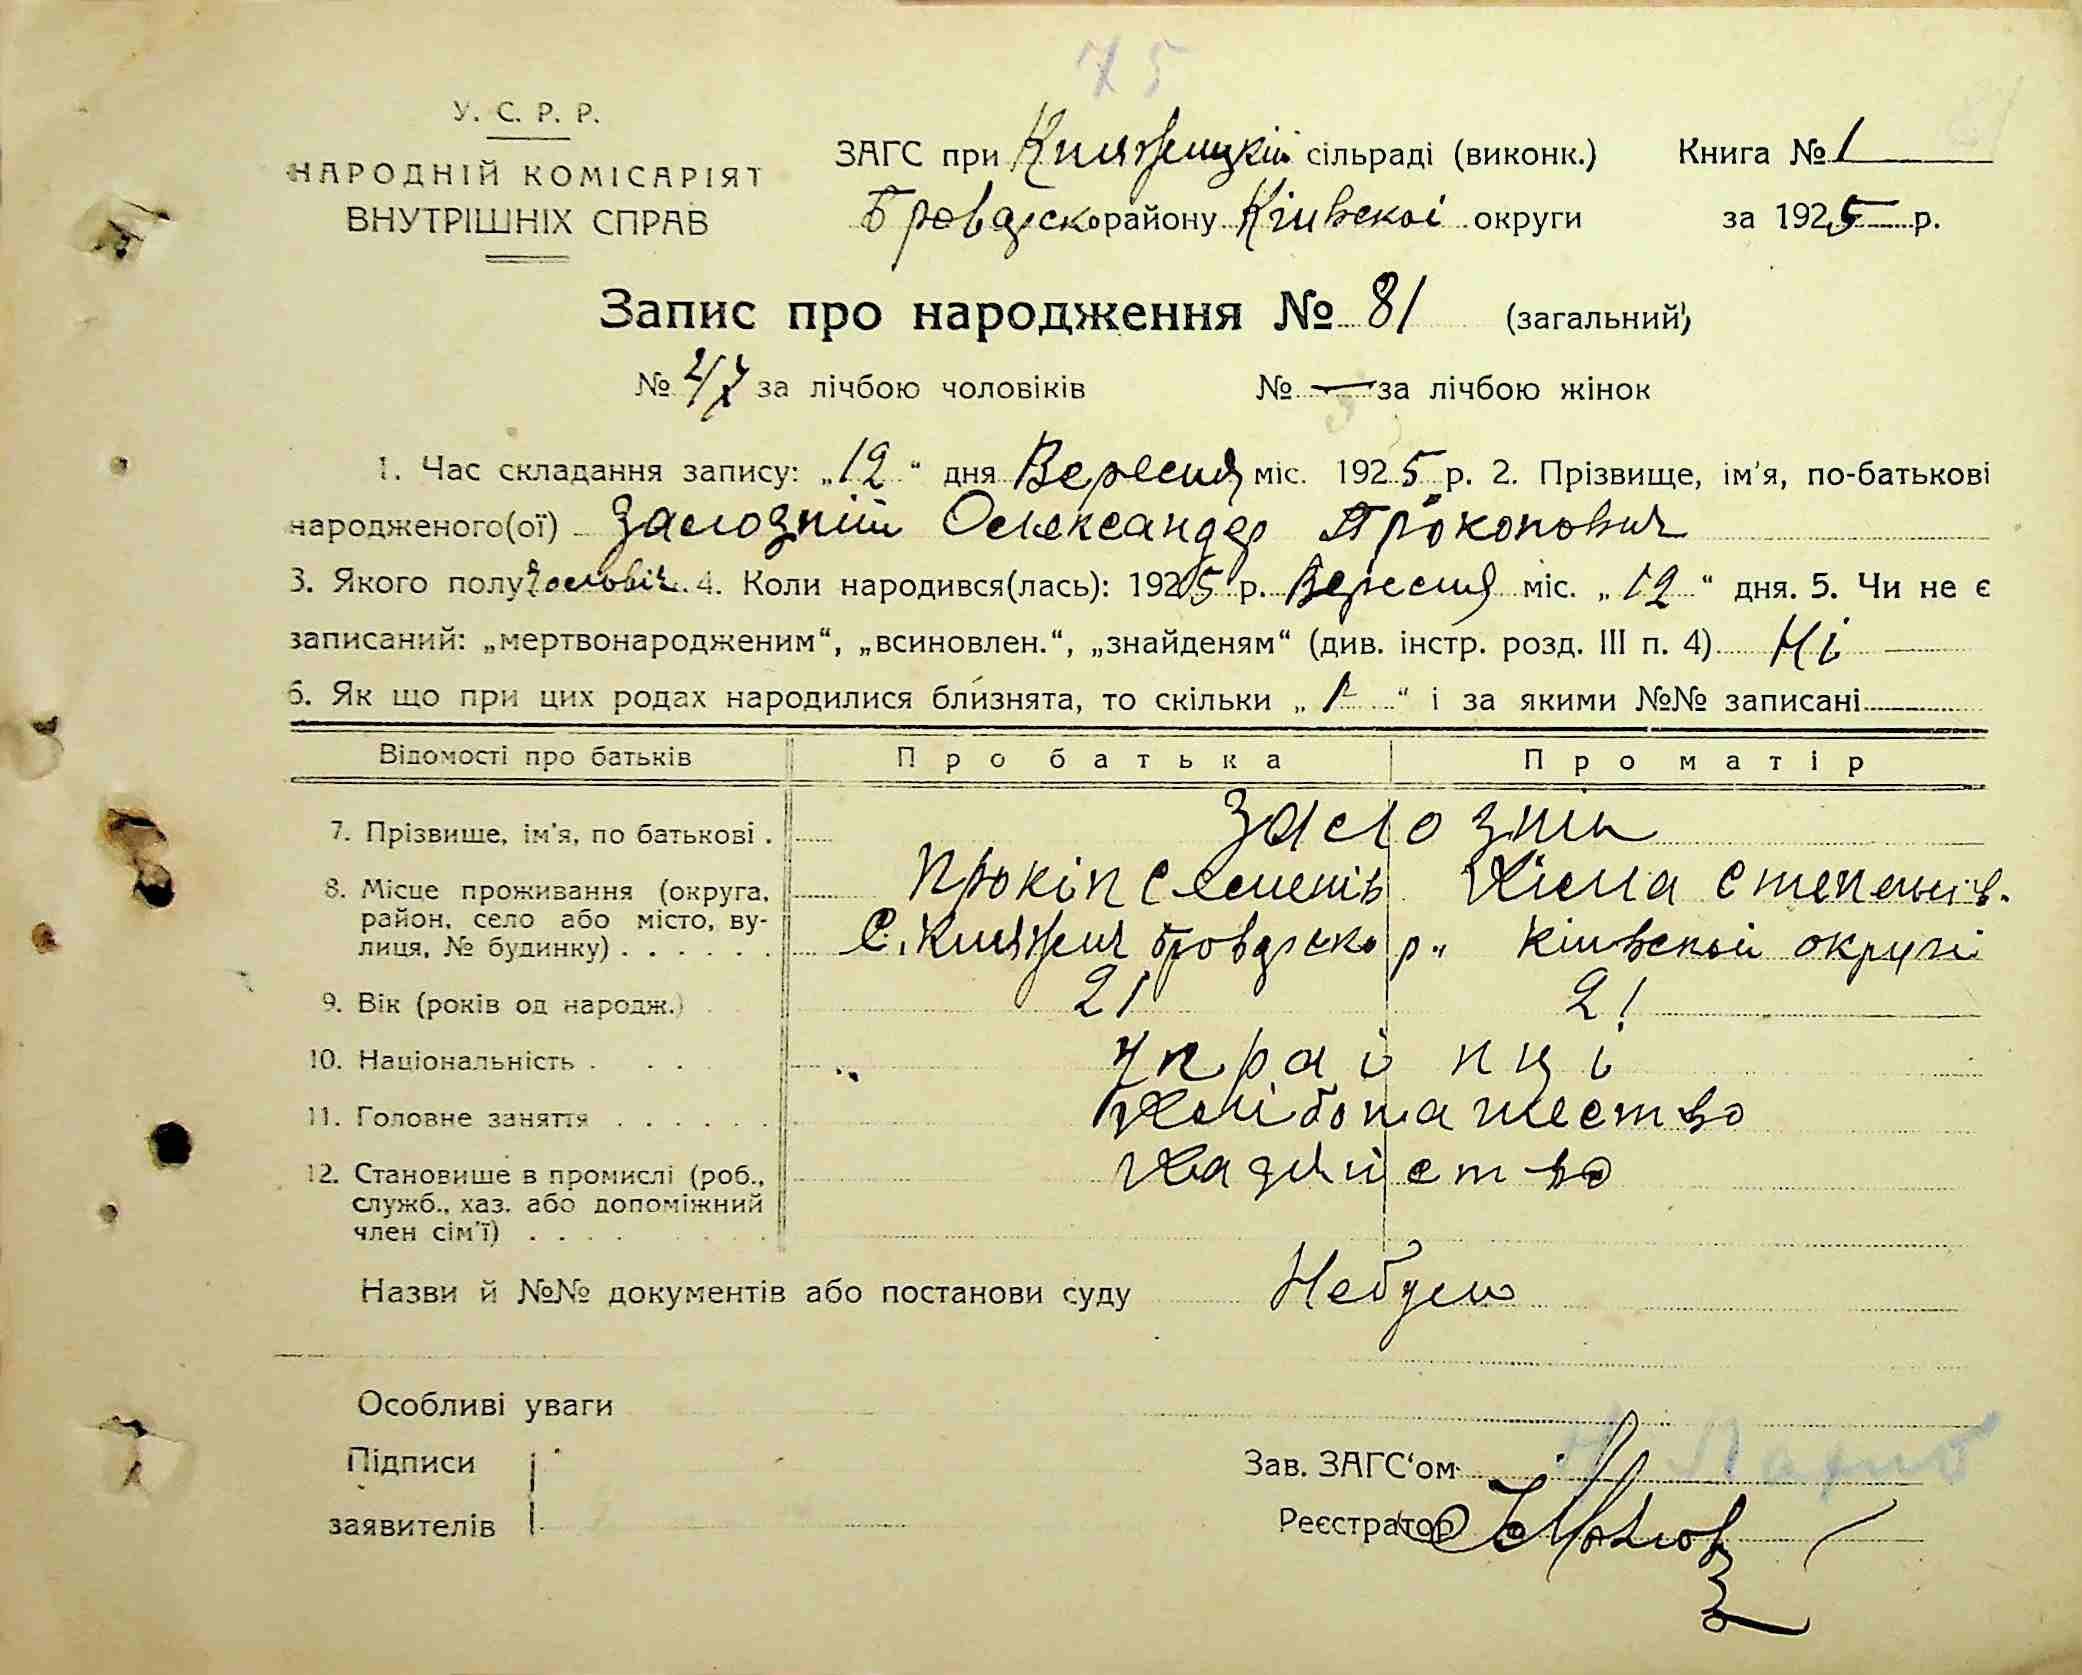 75
У. С. Р. Р.
НАРОДНІЙ КОМІСАРІЯТ
ВНУТРІШНІХ СПРАВ
ЗАГС при Княжицкій сільраді (виконк.) Книга № 1
Броварско району Київскоі округи за 1925 р.
Запис про народження № 81 (загальний)
№ 47 за лічбою чоловіків № — за лічбою жінок
1. Час складання запису: „12“ дня Вересня міс. 1925 р. 2. Прізвище, ім'я, по-батькові
народженого(ої) Залозній Олександер Прокопович
3. Якого полу чоловіч. 4. Коли народився(лась): 1925 р. Вересня міс. „12“ дня. 5. Чи не є
записаний: „мертвонародженим“, „всиновлен.“, „знайденям“ (див. інстр. розд. III п. 4) Ні
6. Як що при цих родах народилися близнята, то скільки „ “ і за якими №№ записані
Відомості про батьків Про батька Про матір
7. Прізвище, ім'я, по батькові . Залозні
8. Місце проживання (округа, Прокіп Семенів Степанів.
район, село або місто, ву-
лиця, № будинку) . . . . . . С. Княжич Броварско р. Київскоі округи
9. Вік (років од народж.) 21 21
10. Національність . . . Украінці
11. Головне заняття . . . . . . Хлібопашество
12. Становище в промислі (роб., Хазяйство
служб., хаз. або допоміжний
член сім'ї) . . . .
Назви й №№ документів або постанови суду Небуло
Особливі уваги
Підписи
заявителів
Зав. ЗАГС'ом
Реєстратор